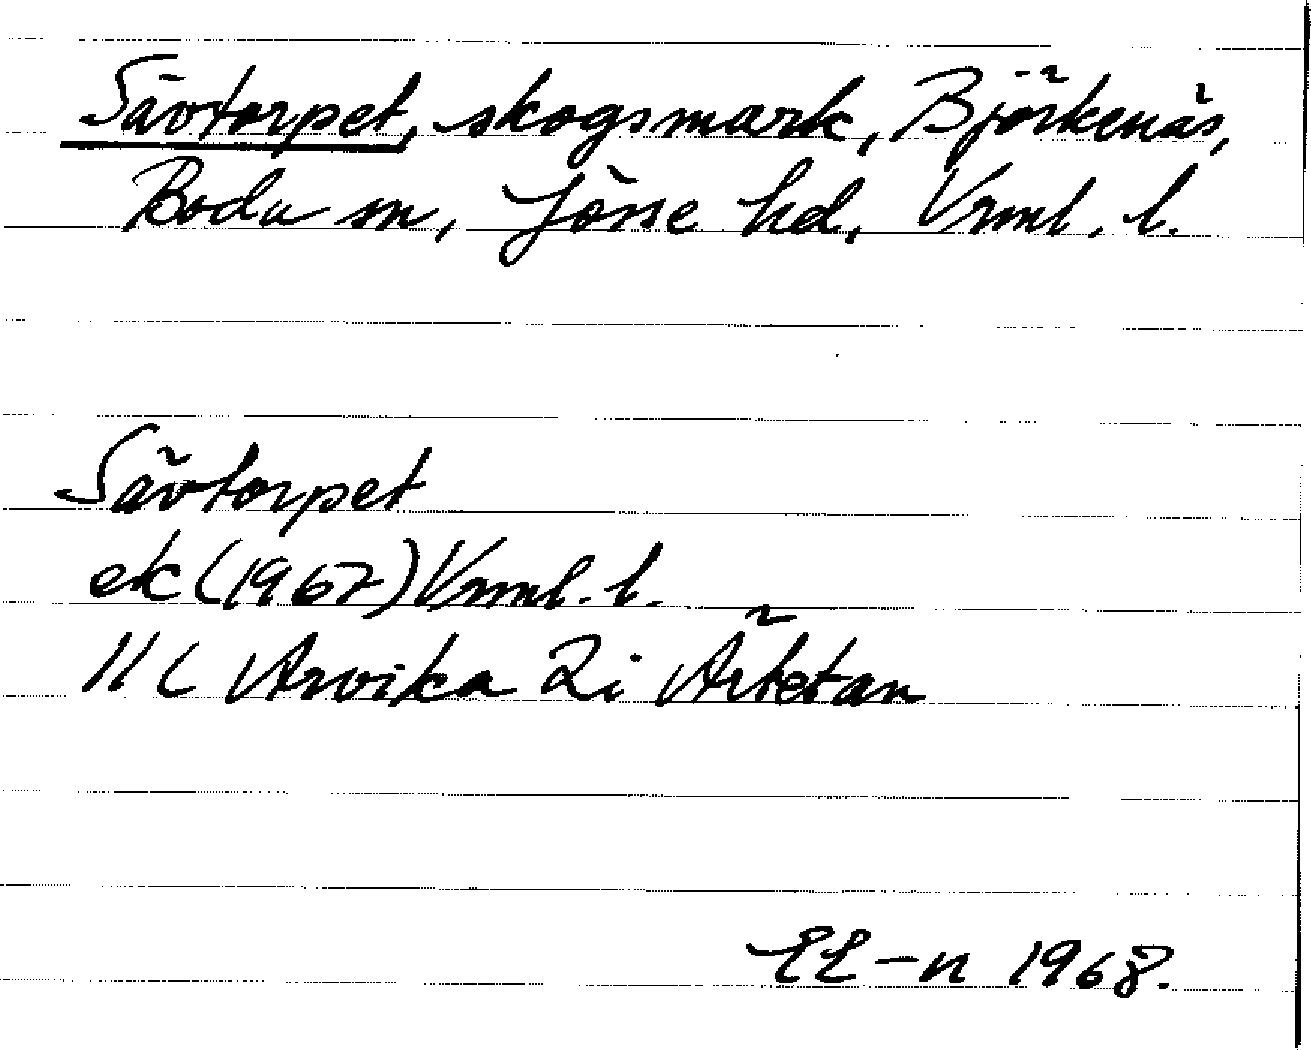 Sävtorpet, skogsmark, Björkenäs,
Boda sn, Jösse hd, Vrml. l.
Sävtorpet
ek (1967) Vrml. l.
11 C Arvika 2i Ärtetan
EL-n 1968.